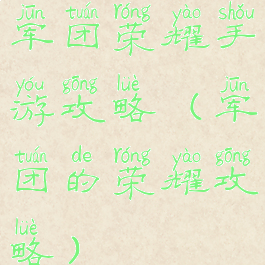 jūn tuán róng yào shǒu
军团荣耀手
yóu gōng lüè jūn
游攻略（军
tuán de róng yào gōng
团的荣耀攻
lüè
略）